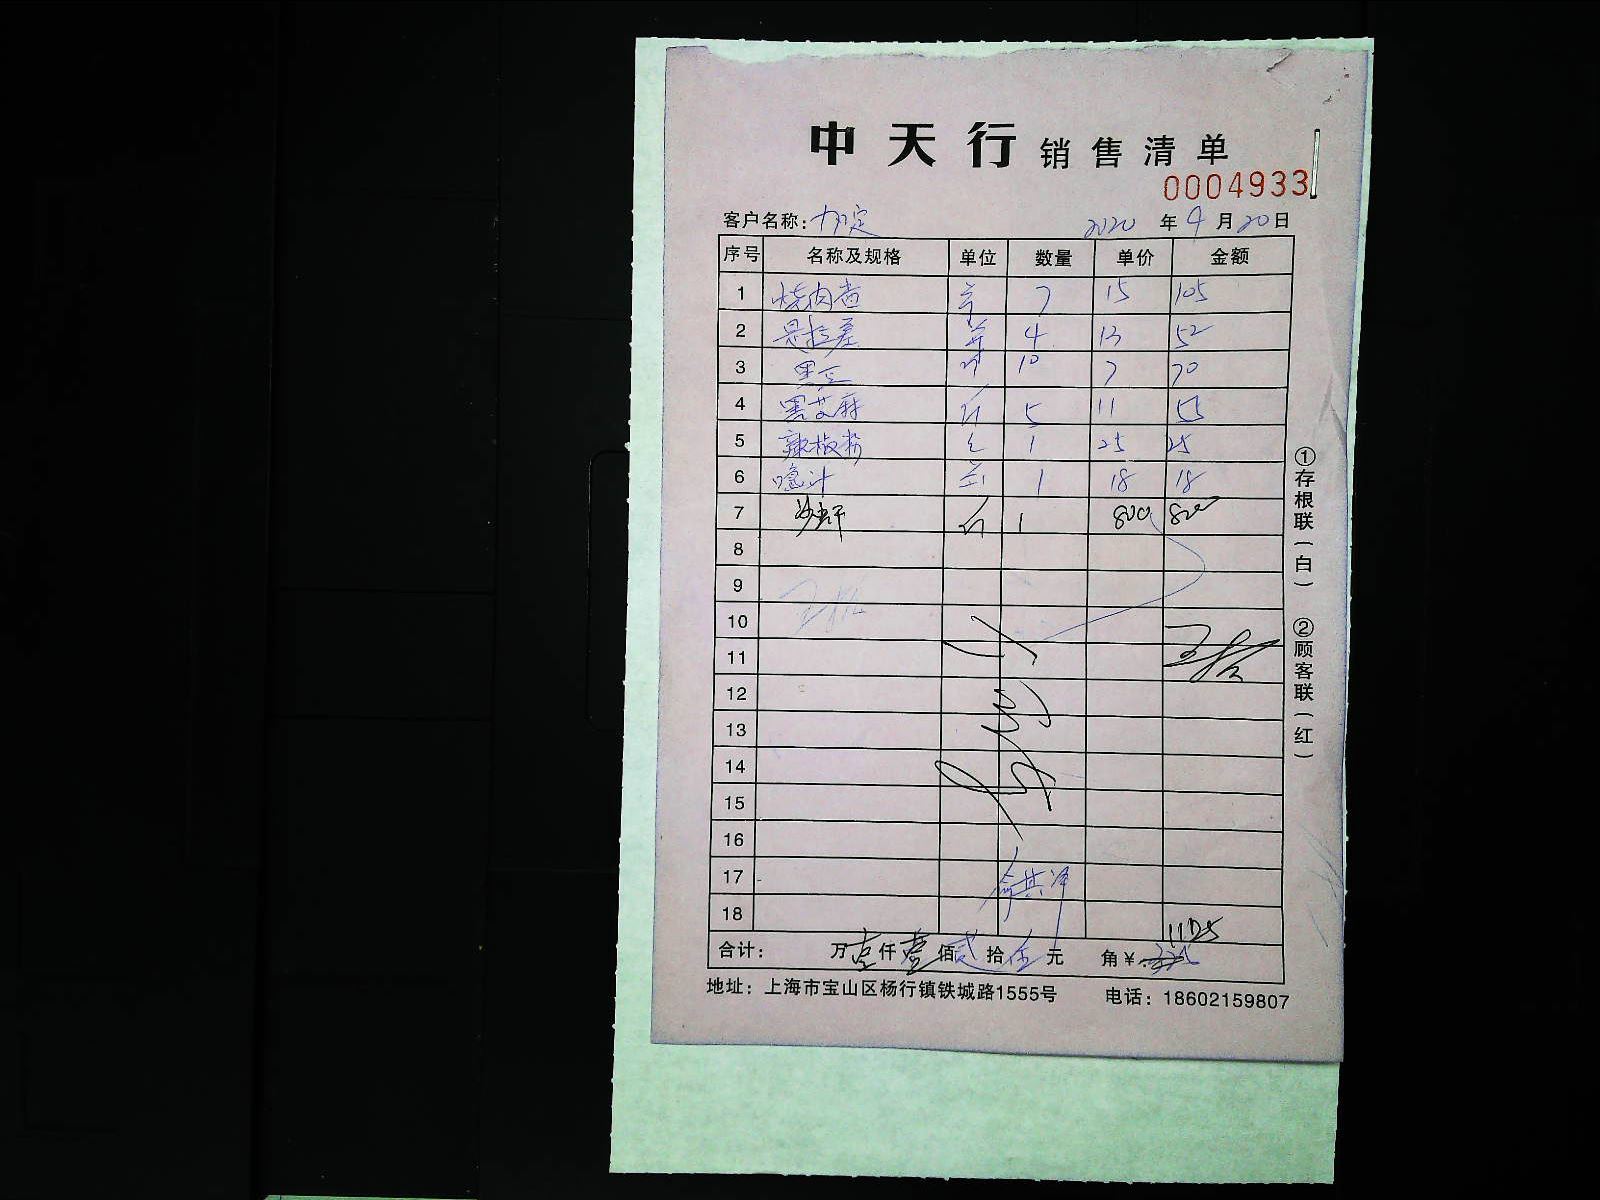 中天行销售清单
0004933
客户名称: 2020年4月20日
序号 名称及规格 单位 数量 单价 金额
1 烧肉酱 7 15 105
2 是拉差 4 13 52
3 黑豆 10 7 70
4 黑芝麻 5 11 55
5 辣椒粉 1 25 25
6 喼汁 1 18 18
7 1 800 800
8
9
10
11
12
13
14
15
16
17
18
1125
合计: 万壹仟壹佰贰拾伍元 角¥
地址:上海市宝山区杨行镇铁城路1555号 电话:18602159807
①存根联(白) ②顾客联(红)